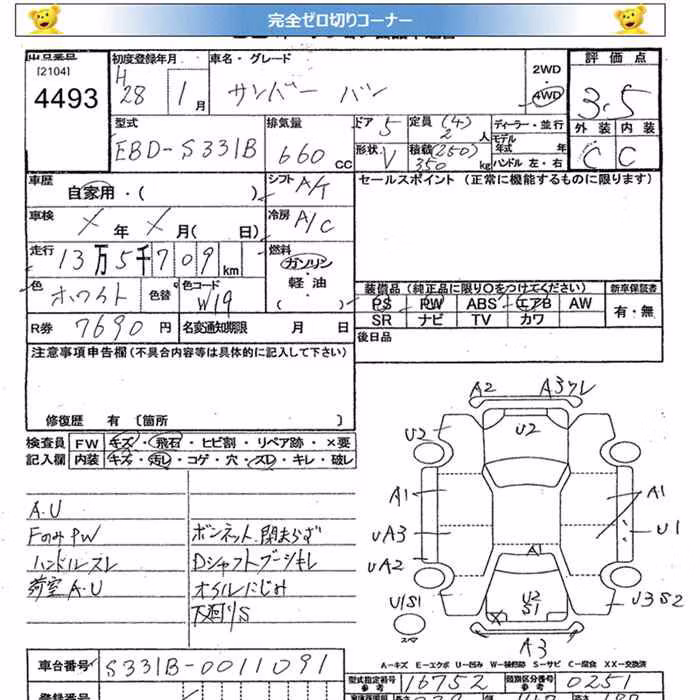 完全ゼロ切りコーナー
出品番号
[2104]
4493
初度登録年月
H 28 1 月
車名・グレード
サンバー バン
2WD
・
4WD
評価点
3.5
外装 内装
C C
型式
EBD-S331B
排気量
660 CC
ドア 5
形状 V
定員 (4) 2 人
積載 (250) 350 kg
ディーラー・並行
モデル年式 年
ハンドル 左・右
車歴
自家用・( )
シフト A/T
セールスポイント (正常に機能するものに限ります)
車検 × 年 × 月( 日)
冷房 A/C
走行
13万5千709 km
燃料
ガソリン
・
軽油
( )
色 ホワイト 色替
色コード W19
装備品 (純正品に限り○をつけてください) 新車保証書
PS PW ABS エアB AW
SR ナビ TV カワ
有・無
R券 7690 円 名変通知期限 月 日
後日品
注意事項申告欄(不具合内容等は具体的に記入して下さい)
修復歴 有 〔箇所 〕
検査員 FW キズ・飛石・ヒビ割・リペア跡・×要
記入欄 内装 キズ・汚レ・コゲ・穴・スレ・キレ・破レ
A.U
FのみPW
ハンドルスレ
荷室A.U
ボンネット閉まらず
Dシャフトブーツキレ
オイルにじみ
下廻りS
A2 A3ワレ
U2 U2
A1 A1
UA3 U1
UA2 A1
U1S1 U2 S1 U3S2
×
スペ
A3
A-キズ E-エクボ U-凹み W-補修跡 S-サビ C-腐食 XX-交換済
車台番号 S331B-0011091
型式指定番号 参考 16752 類別区分番号 参考 0251
登録番号